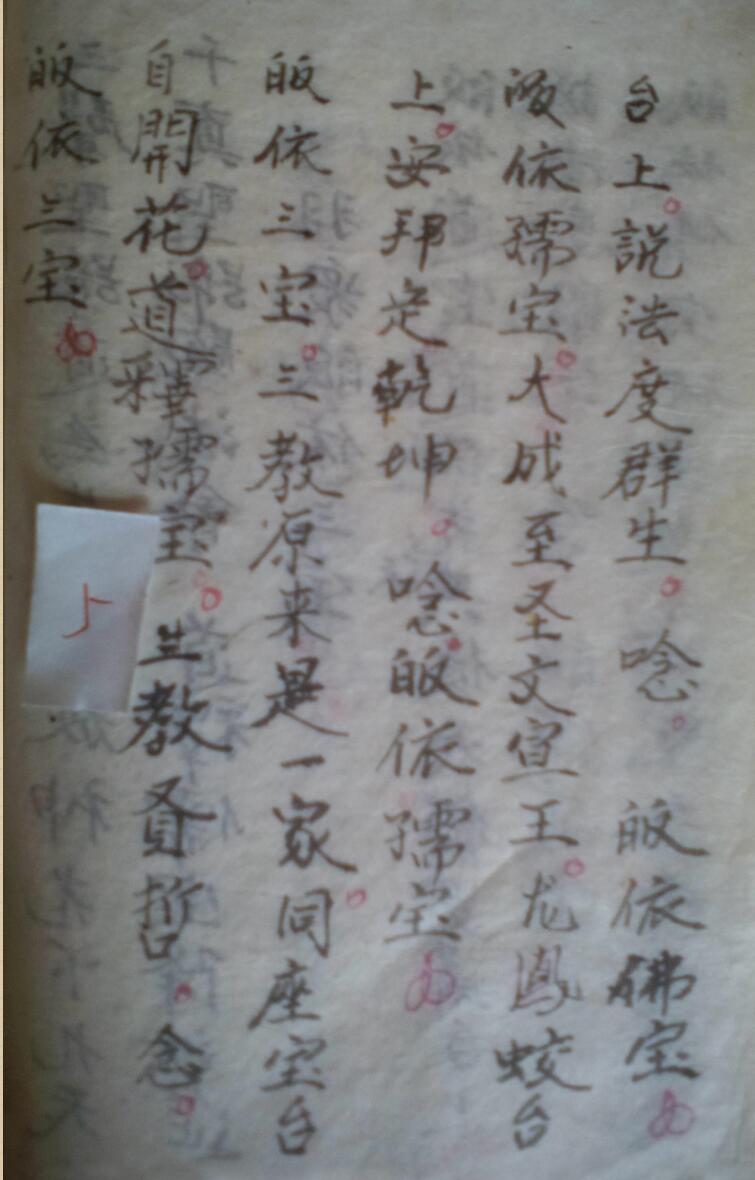 台上。說法度群生。唸。皈依佛宝
皈依孺宝。大成至圣文宣王。龙鳳蛟台
上。安邦定乾坤。唸。皈依孺宝
皈依三宝。三教原来是一家。同座宝台
自開花。道釋孺宝。三教贤哲。念。
皈依三宝
上